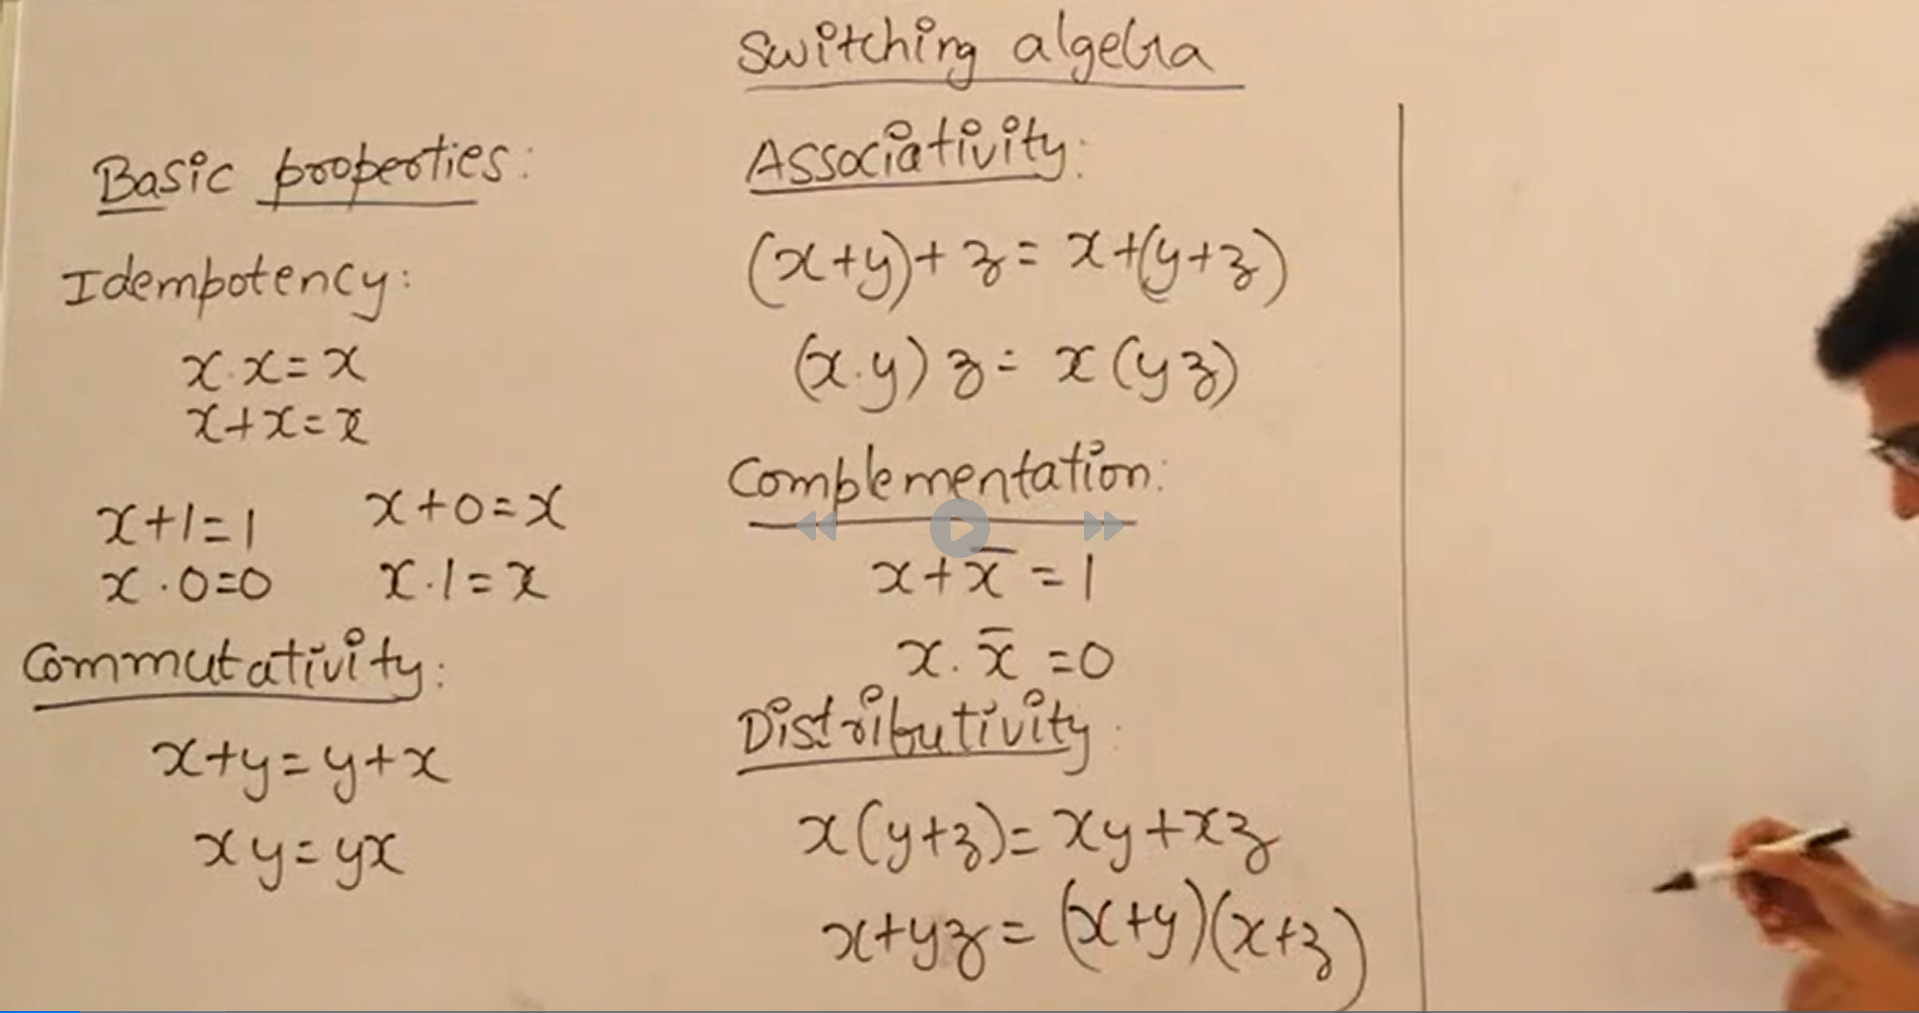 Switching algebra
Basic properties:
Idempotency:
x.x=x
x+x=x
x+1=1
x+0=x
x.0=0
x.1=x
Commutativity:
x+y=y+x
xy=yx
Associativity:
(x+y)+z=x+(y+z)
(x.y)z=x(yz)
Complementation:
x+x̄=1
x.x̄=0
Distributivity:
x(y+z)=xy+xz
x+yz=(x+y)(x+z)